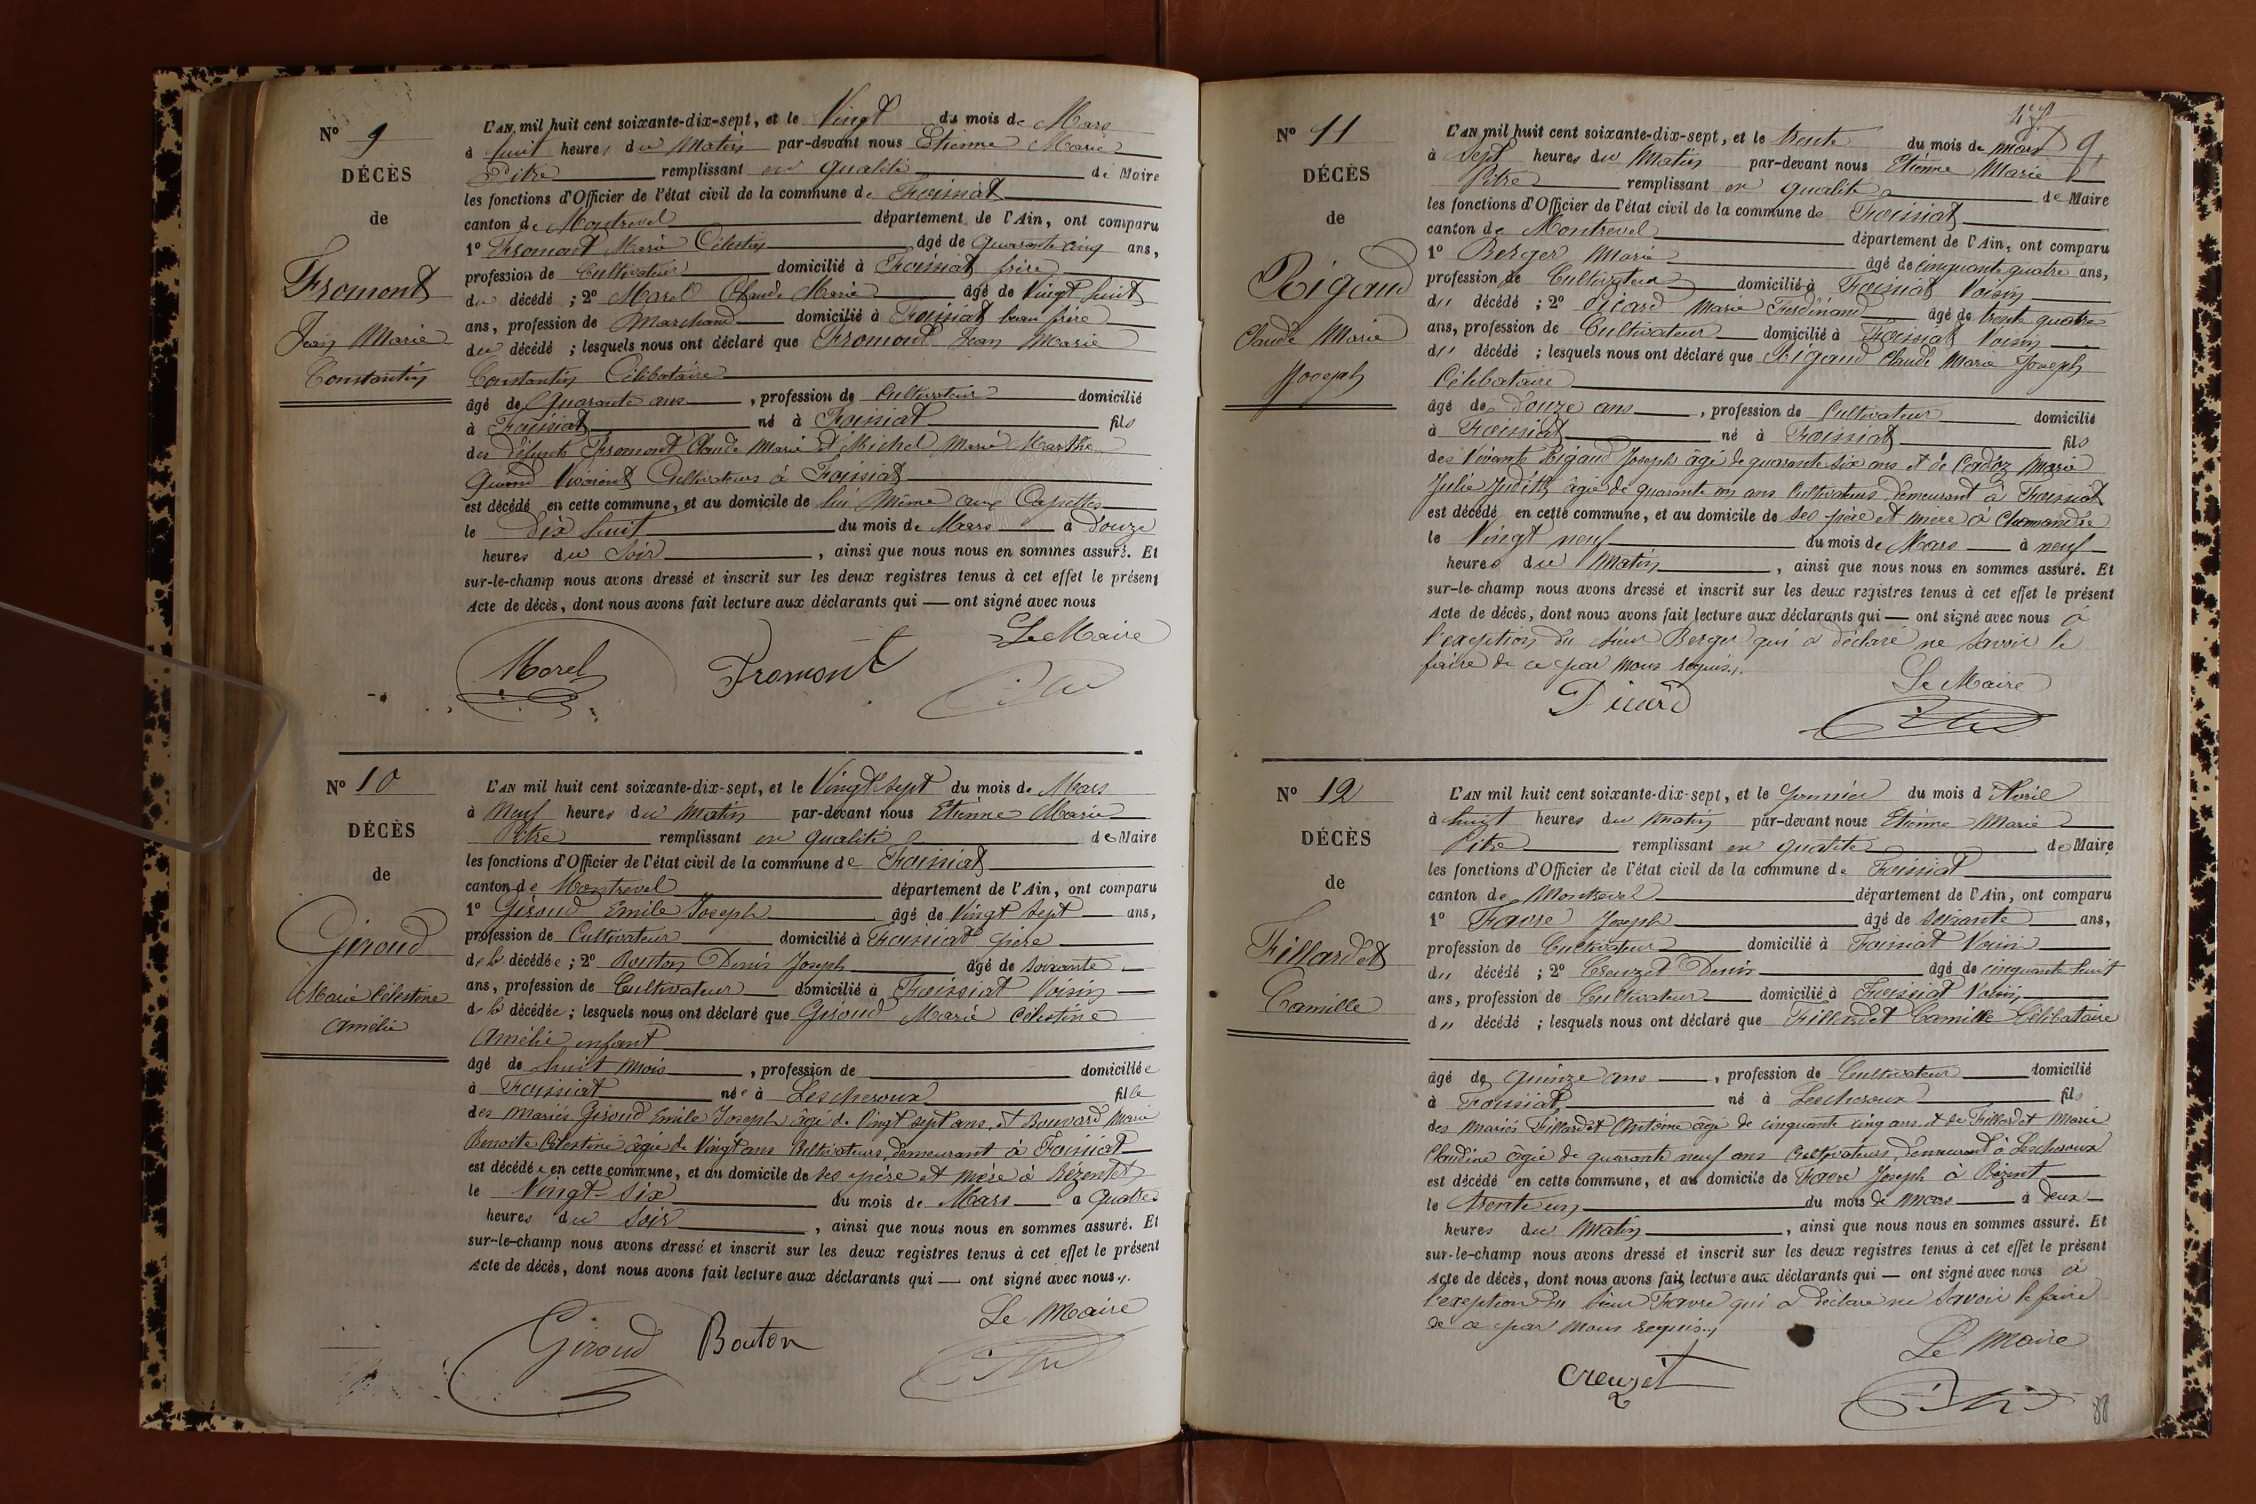 N° 9
DÉCÈS
de
Fromont
Jean Marie
Constantin
L'AN mil huit cent soixante-dix-sept, et le Vingt du mois de Mars
à huit heures du Matin par-devant nous Etienne Marie
Pitre remplissant en qualité de Maire
les fonctions d'Officier de l'état civil de la commune de Foissiat
canton de Montrevel département de l'Ain, ont comparu
1° Fromont Marie Célestin âgé de quarante cinq ans,
profession de Cultivateur domicilié à Foissiat frère
du décédé ; 2° Morel Claude Marie âgé de Vingt huit
ans, profession de Marchand domicilié à Foissiat beau frère
du décédé ; lesquels nous ont déclaré que Fromont Jean Marie
Constantin Célibataire
âgé de Quarante ans, profession de Cultivateur domicilié
à Foissiat né à Foissiat fils
des défunts Fromont Claude Marie et Michel Marie Marthe
quand Vivaient Cultivateurs à Foissiat
est décédé en cette commune, et au domicile de lui Même aux Capettes
le Dix huit du mois de Mars à Douze
heures du Soir, ainsi que nous nous en sommes assuré. Et
sur-le-champ nous avons dressé et inscrit sur les deux registres tenus à cet effet le présent
Acte de décès, dont nous avons fait lecture aux déclarants qui — ont signé avec nous
Le Maire
Morel Fromont
N° 10
DÉCÈS
de
Giroud
Marie Célestine
Amélie
L'AN mil huit cent soixante-dix-sept, et le Vingt sept du mois de Mars
à Neuf heures du Matin par-devant nous Etienne Marie
Pitre remplissant en qualité de Maire
les fonctions d'Officier de l'état civil de la commune de Foissiat
canton de Montrevel département de l'Ain, ont comparu
1° Giroud Emile Joseph âgé de Vingt sept ans,
profession de Cultivateur domicilié à Foissiat père
de la décédée ; 2° Bouton Denis Joseph âgé de soixante
ans, profession de Cultivateur domicilié à Foissiat Voisin
de la décédée ; lesquels nous ont déclaré que Giroud Marie Célestine
Amélie enfant
âgé de huit mois, profession de domiciliée
à Foissiat née à Lescheroux fille
des mariés Giroud Emile Joseph âgé de Vingt sept ans et Bouvard Marie
Benoite Célestine âgée de Vingt ans Cultivateurs demeurant à Foissiat
est décédée en cette commune, et au domicile de ses père et mère à Bézentet
le Vingt-six du mois de Mars à quatre
heures du Soir, ainsi que nous nous en sommes assuré. Et
sur-le-champ nous avons dressé et inscrit sur les deux registres tenus à cet effet le présent
Acte de décès, dont nous avons fait lecture aux déclarants qui — ont signé avec nous
Le Maire
Giroud Bouton
9
N° 11
DÉCÈS
de
Rigaud
Claude Marie
Joseph
L'AN mil huit cent soixante-dix-sept, et le trente du mois de mars
à Sept heures du Matin par-devant nous Etienne Marie
Pitre remplissant en qualité de Maire
les fonctions d'Officier de l'état civil de la commune de Foissiat
canton de Montrevel département de l'Ain, ont comparu
1° Berger Marie âgé de cinquante quatre ans,
profession de Cultivateur domicilié à Foissiat Voisin
du décédé ; 2° Picard Marie Ferdinand âgé de trente quatre
ans, profession de Cultivateur domicilié à Foissiat Voisin
du décédé ; lesquels nous ont déclaré que Rigaud Claude Marie Joseph
Célibataire
âgé de Douze ans, profession de Cultivateur domicilié
à Foissiat né à Foissiat fils
des Vivants Rigaud Joseph âgé de quarante six ans et de Cadoz Marie
Julie Judith âgée de quarante un ans Cultivateurs demeurant à Foissiat
est décédé en cette commune, et au domicile de ses père et mère à Chamandre
le Vingt neuf du mois de Mars à neuf
heures du Matin, ainsi que nous nous en sommes assuré. Et
sur-le-champ nous avons dressé et inscrit sur les deux registres tenus à cet effet le présent
Acte de décès, dont nous avons fait lecture aux déclarants qui — ont signé avec nous à
l'exeption du sieur Berger qui a déclaré ne savoir le
faire de ce par nous requis.
Le Maire
Picard
N° 12
DÉCÈS
de
Fillardet
Camille
L'AN mil huit cent soixante-dix-sept, et le premier du mois d Avril
à huit heures du Matin par-devant nous Etienne Marie
Pitre remplissant en qualité de Maire
les fonctions d'Officier de l'état civil de la commune de Foissiat
canton de Montrevel département de l'Ain, ont comparu
1° Favre Joseph âgé de soixante ans,
profession de Cultivateur domicilié à Foissiat Voisin
du décédé ; 2° Creuzet Denis âgé de cinquante huit
ans, profession de Cultivateur domicilié à Foissiat Voisin
du décédé ; lesquels nous ont déclaré que Fillardet Camille Célibataire
âgé de quinze ans, profession de Cultivateur domicilié
à Foissiat né à Lescheroux fils
des mariés Fillardet Antoine âgé de cinquante cinq ans et de Fillardet Marie
Claudine âgée de quarante neuf ans Cultivateurs demeurant à Lescheroux
est décédé en cette commune, et au domicile de Favre Joseph à Bézentet
le trente un du mois de Mars à deux
heures du Matin, ainsi que nous nous en sommes assuré. Et
sur-le-champ nous avons dressé et inscrit sur les deux registres tenus à cet effet le présent
Acte de décès, dont nous avons fait lecture aux déclarants qui — ont signé avec nous à
l'exeption du sieur Favre qui a déclaré ne savoir le faire
de ce par nous requis.
Le Maire
Creuzet
88